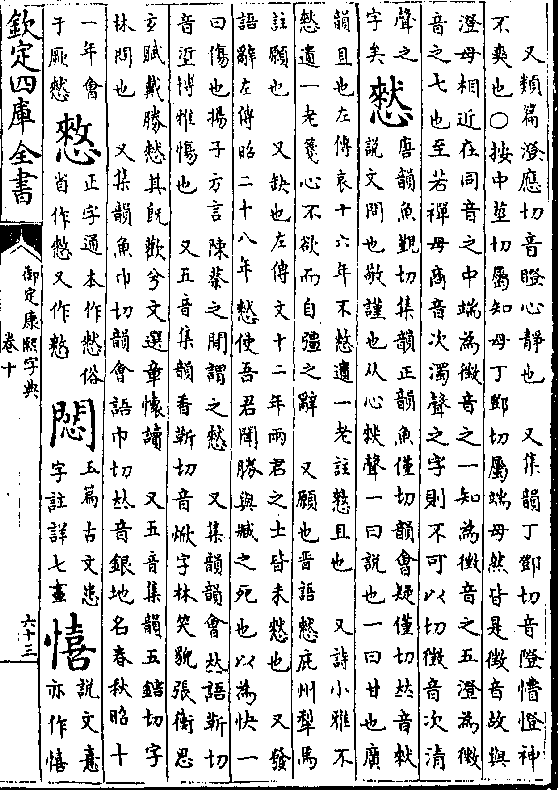 又類篇澄應切音瞪心靜也 又集韻丁鄧切音隥懵憕神
不爽也○按中莖切屬知母丁鄧切屬端母然皆是徵音故與
澄母相近在同音之中端為徵音之一知為徵音之五澄為徵
音之七也至若禪母商音次濁聲之字則不可以切徵音次清
聲之字矣
憖 唐韻魚覲切集韻正韻魚僅切韻會疑僅切𠀤音猌
說文問也敬謹也从心猌聲一曰說也一曰甘也廣
韻且也左傳哀十六年不憖遺一老註憖且也 又詩小雅不
憖遺一老箋心不欲而自彊之辭 又願也晉語憖庇州犂焉
註願也 又缺也左傳文十二年兩君之士皆未憖也 又發
語辭左傳昭二十八年憖使吾君聞勝與臧之死也以為快一
曰傷也揚子方言陳蔡之閒謂之憖 又集韻韻會𠀤語靳切
音垽博雅傷也 又五音集韻香靳切音焮字林笑貌張衡思
玄賦戴勝憖其旣歡兮文選章懷讀 又五音集韻五鎋切字
林問也 又集韻魚巾切韻會語巾切𠀤音銀地名春秋昭十
一年會于厥憖
憗 正字通本作憖俗省作憗又作憗
悶 玉篇古文患字註詳七畫
憘 說文憙亦作憘
欽定四庫全書
御定康熙字典
卷十
六十三